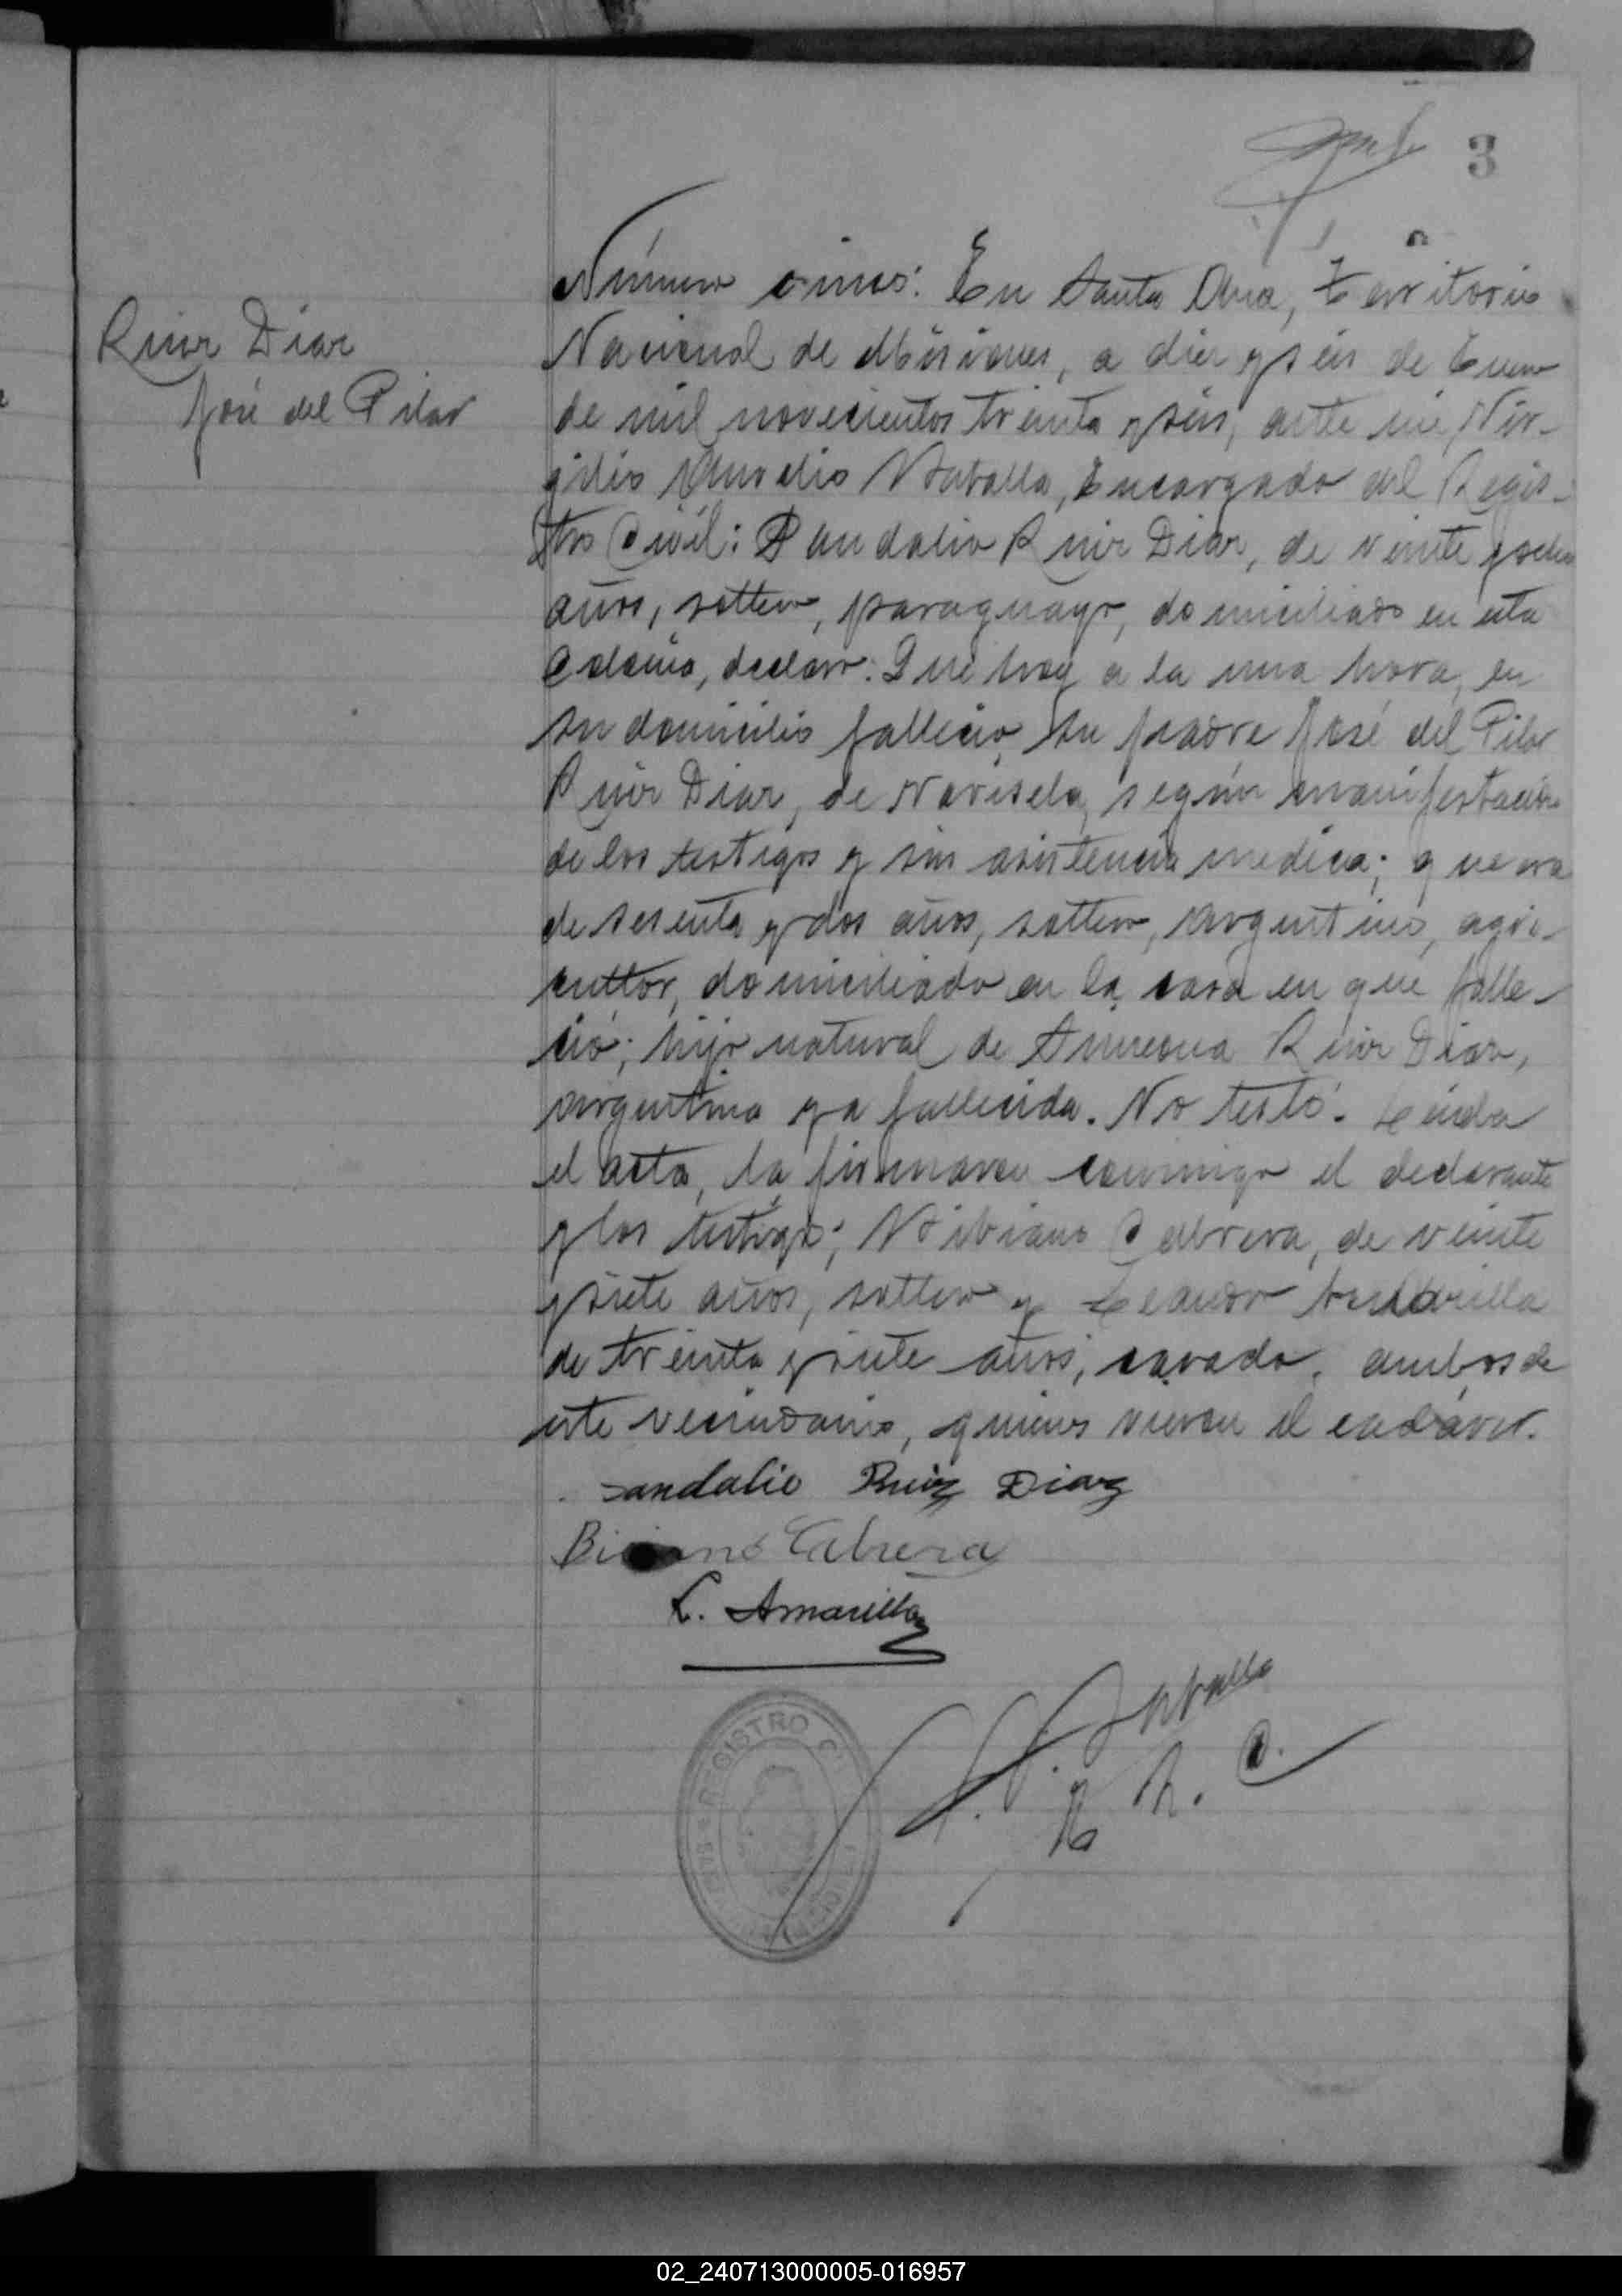 3
Ruiz Diaz
José del Pilar
Número cinco: En Santa Ana, Territorio
Nacional de Misiones, a diez y seis de Enero
de mil novecientos treinta y seis, ante mi, Vir-
gilio Aurelio Zaballa, Encargado del Regis-
tro Civil: Sandalio Ruiz Diaz, de veinte y ocho
años, soltero, paraguayo, domiciliado en esta
Colonia, declaro: Que hoy a la una hora, en
su domicilio falleció su padre José del Pilar
Ruiz Diaz, de según manifestación
de los testigos y sin asistencia medica; que era
de sesenta y dos años, soltero, argentino, agri-
cultor, domiciliado en la casa en que falle-
ció; hijo natural de Ruiz Diaz,
argentina ya fallecida. No testó. Leida
el acta, la firmaron conmigo el declarante
y los testigos; Vibiano Cabrera, de veinte
y siete años, soltero y Leandro Amarilla
de treinta y siete años, casado, ambos de
este vecindario, quienes vieron el cadáver.
Sandalio Ruiz Diaz
Cabrera
L. Amarilla
V. A. Zaballa
E. R. C.
REGISTRO CI
02_240713000005-016957